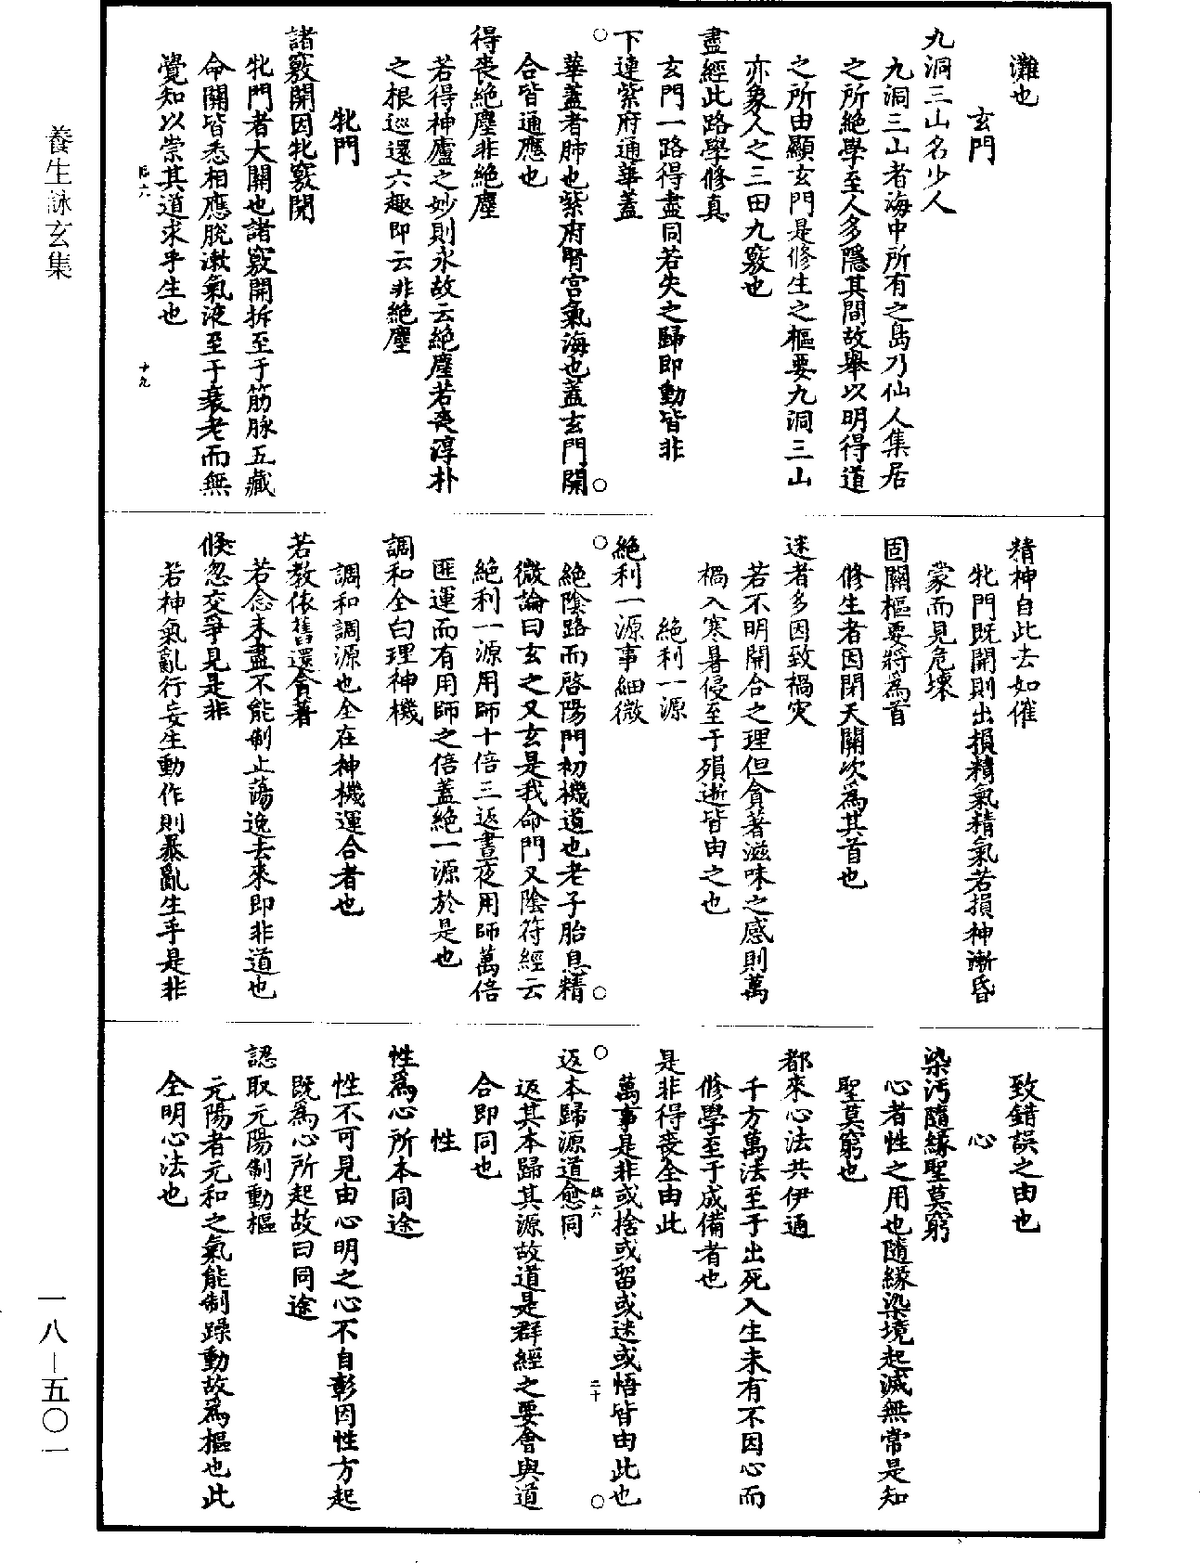 灘也
玄門
九洞三山名少人
九洞三山者海中所有之島乃仙人集居
之所絶學至人多隱其間故舉以明得道
之所由顯玄門是修生之樞要九洞三山
亦象人之三田九竅也
盡經此路學修真
玄門一路得盡同若失之歸即動皆非
下連紫府通華蓋
華蓋者肺也紫府腎宫氣海也蓋玄門開
合皆通應也
得喪絶塵非絶塵
若得神廬之妙則永故云絶塵若喪淳朴
之根巡還六趣即云非絶塵
牝門
諸竅開因牝竅開
牝門者大關也諸竅開拆至于筋脉五藏
命關皆悉相應脱漱氣液至于衰老而無
覺知以崇其道求乎生也
臨六
十九
精神自此去如催
牝門既開則出損精氣精氣若損神漸昏
蒙而見危壞
固關樞要將為首
修生者因閉天關次為其首也
迷者多因致禍灾
若不明開合之理但貪著滋味之感則萬
禍入寒暑侵至于殞逝皆由之也
絶利一源
絶利一源事細微
絶陰路而啓陽門初機道也老子胎息精
微論曰玄之又玄是我命門又陰符經云
絶利一源用師十倍三返晝夜用師萬倍
匪運而有用師之倍蓋絶一源於是也
調和全白理神機
調和調源也全在神機運合者也
若教依舊還會著
若念未盡不能制止蕩逸去來即非道也
倏忽交爭見是非
若神氣亂行妄生動作則暴亂生乎是非
致錯誤之由也
心
染汚隨緣聖莫窮
心者性之用也隨緣染境起滅無常是知
聖莫窮也
都來心法共伊通
千方萬法至于出死入生未有不因心而
修學至于成備者也
是非得喪全由此
萬事是非或捨或留或迷或悟皆由此也
臨六
二十
返本歸源道愈同
返其本歸其源故道是群經之要會與道
合即同也
性
性為心所本同途
性不可見由心明之心不自彰因性方起
既為心所起故曰同途
認取元陽制動樞
元陽者元和之氣能制躁動故為樞也此
全明心法也
養生詠玄集
一八—五〇一